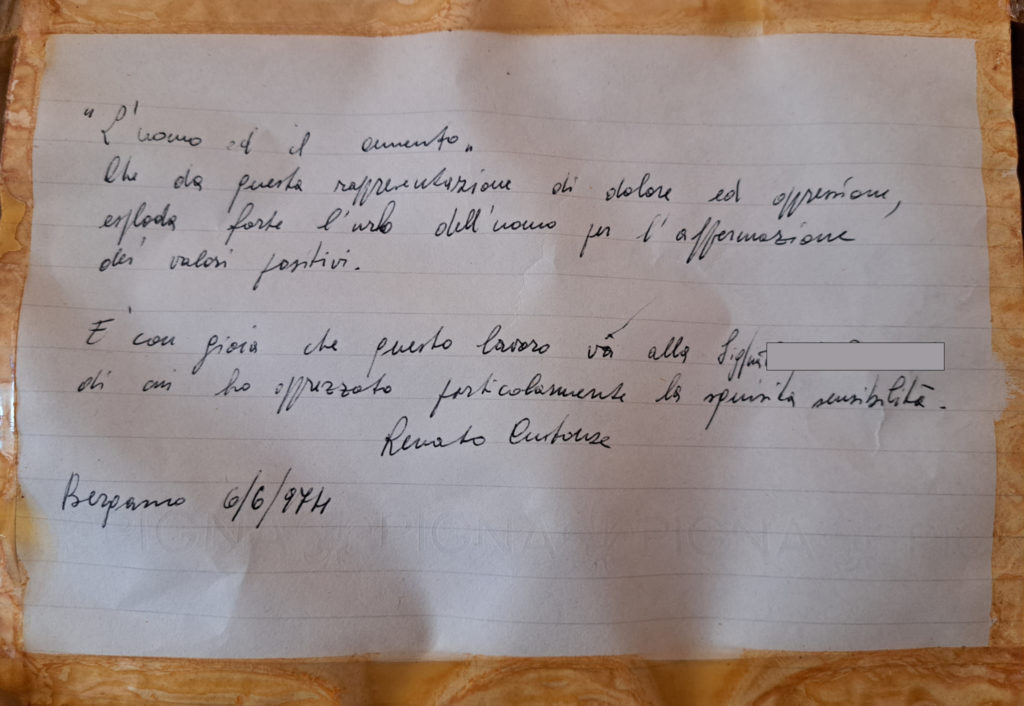 "L'uomo ed il cemento„
Che da questa rappresentazione di dolore ed oppressione,
esploda forte l'urlo dell'uomo per l'affermazione
dei valori positivi.
E' con gioia che questo lavoro và alla
di cui ho apprezzato particolarmente la squisita sensibilità.
Renato
Bergamo 6/6/974
PIGNA PIGNA PIGNA PIG